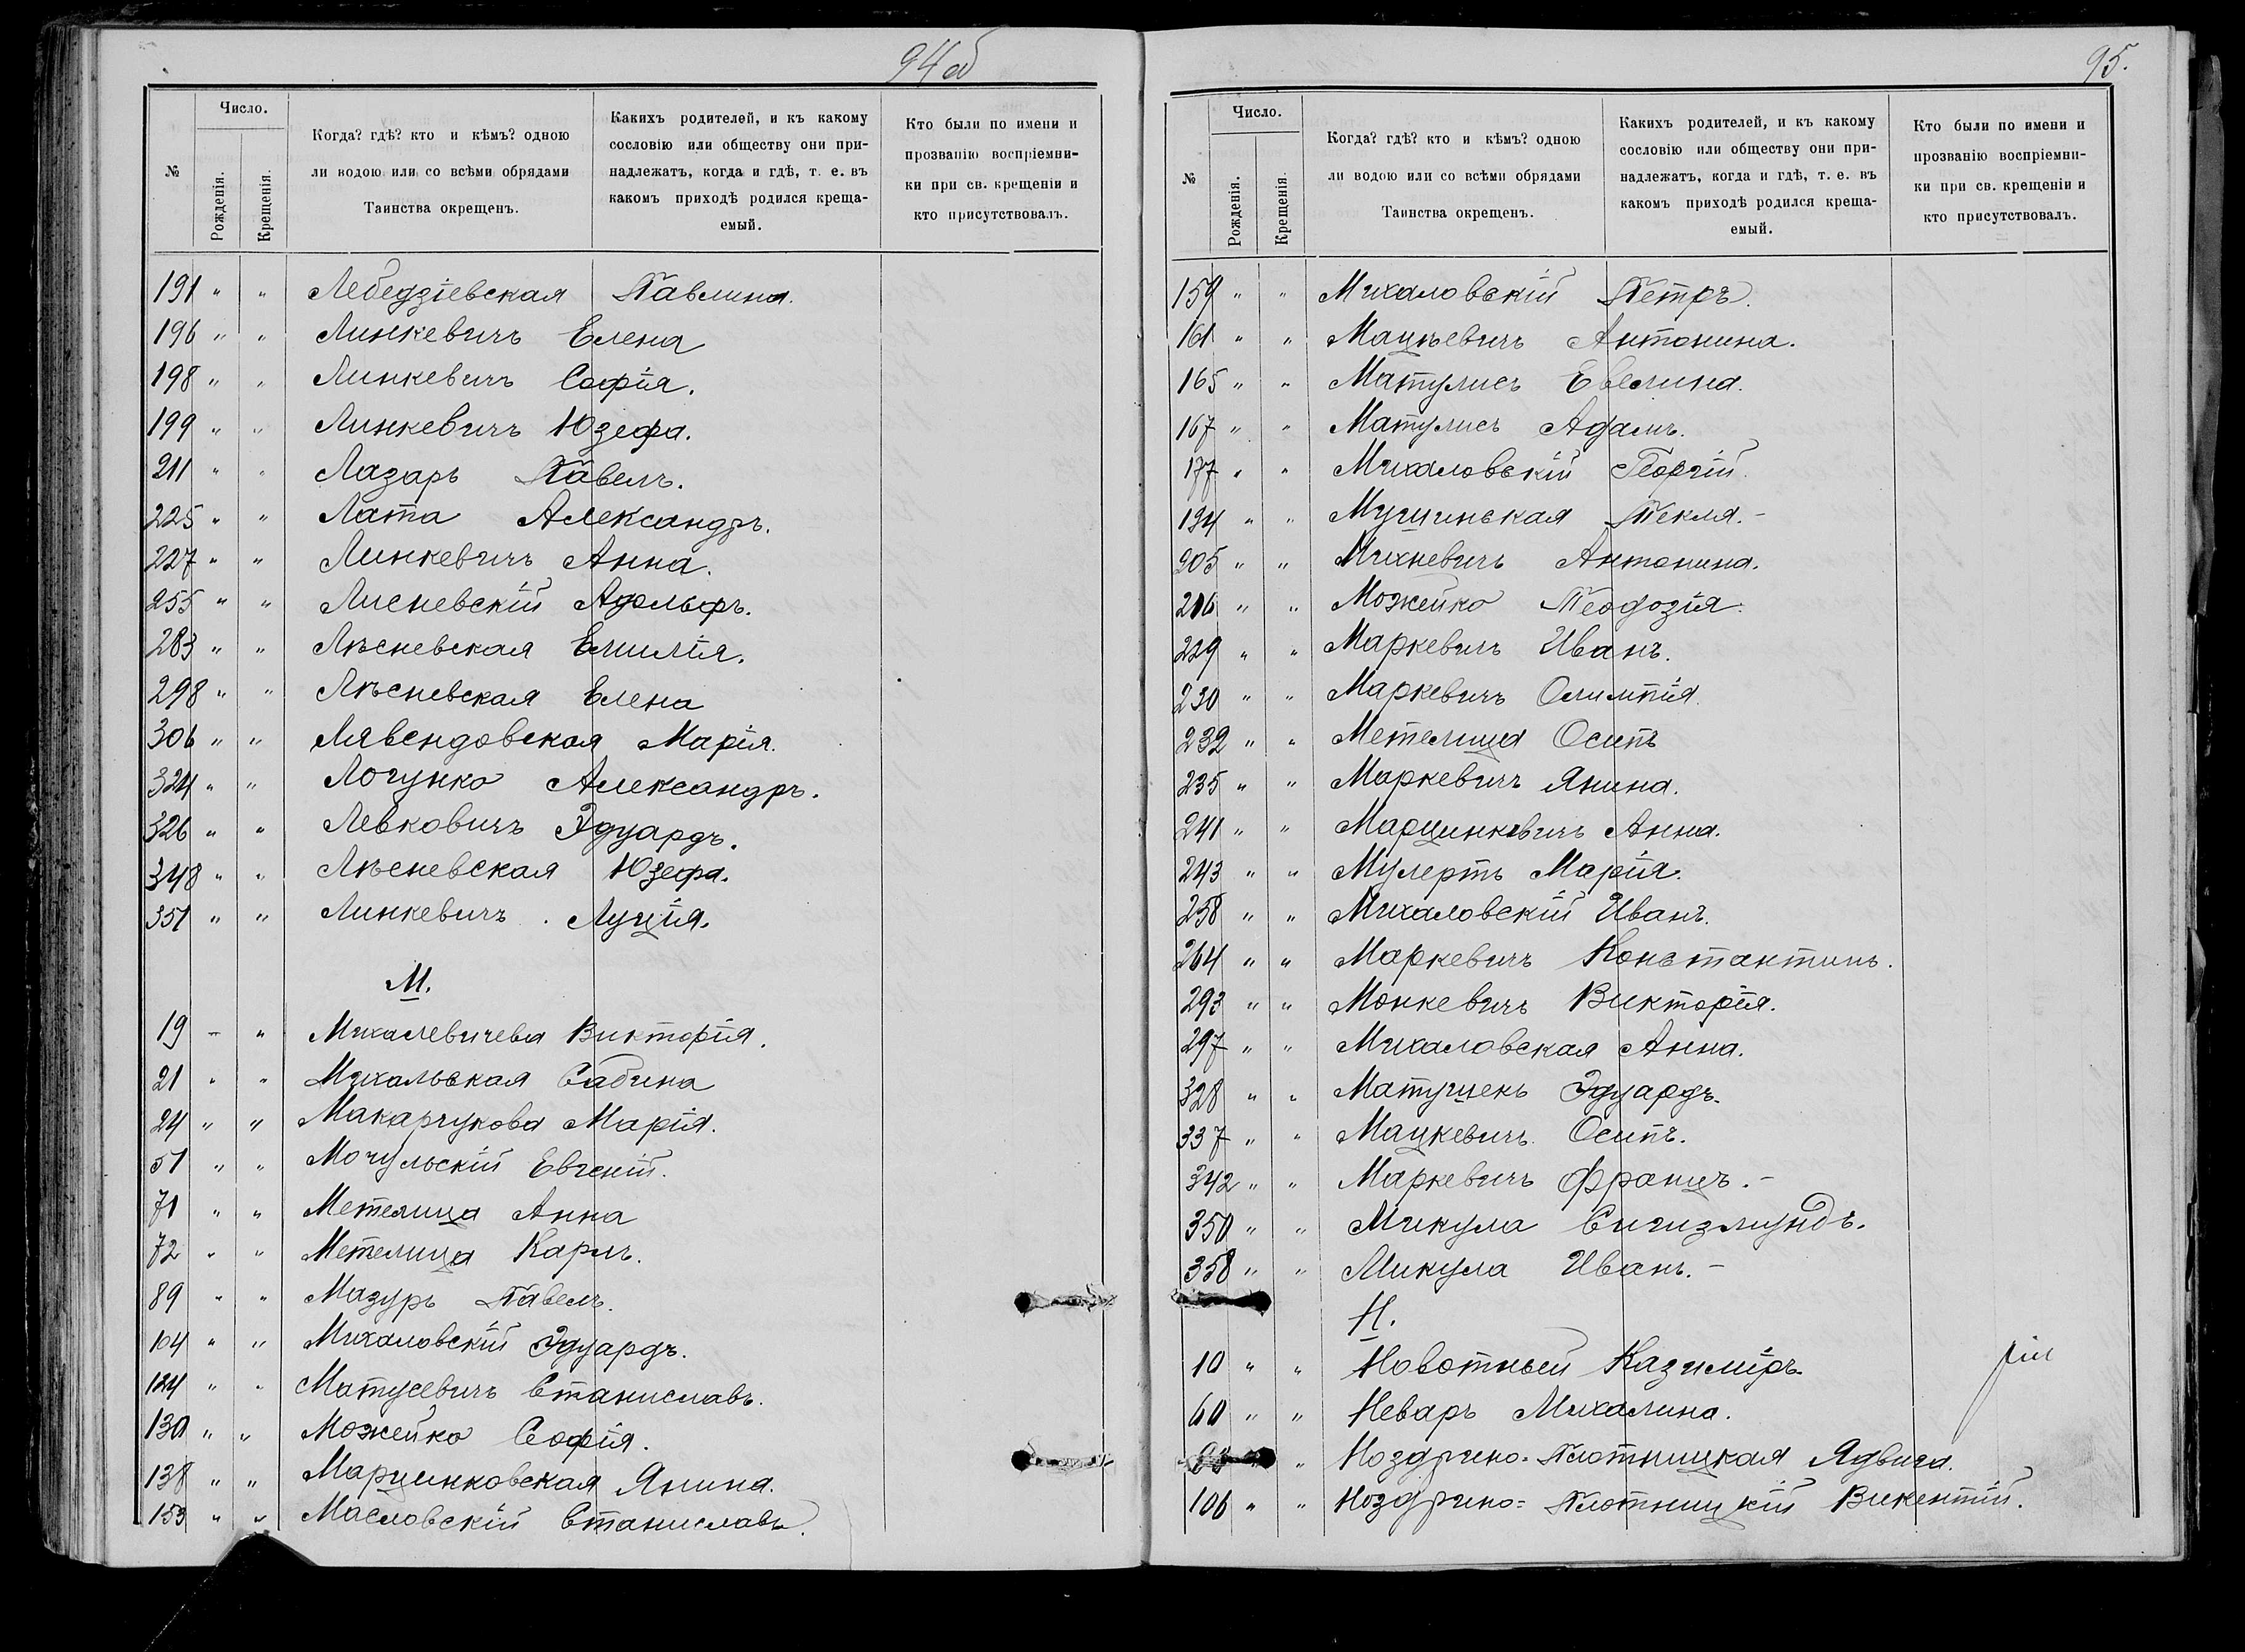 94 об
№
Число.
Рожденія.
Крещенія.
Когда? гдѣ? кто и кѣмъ? одною
ли водою или со всѣми обрядами
Таинства окрещенъ.
Какихъ родителей, и къ какому
сословію или обществу они при-
надлежатъ, когда и гдѣ, т. е. въ
какомъ приходѣ родился креща-
емый.
Кто были по имени и
прозванію воспріемни-
ки при св. крещеніи и
кто присутствовалъ.
191 " " Лебедзіевская Павлина.
196 " " Линкевичъ Елена
198 " " Линкевичъ Софія.
199 " " Линкевичъ Юзефа.
211 " " Лазарь Павелъ.
225 " " Лата Александръ.
227 " " Линкевичъ Анна.
255 " " Лисневскій Адольфъ.
283 " " Лѣсневская Емилія.
298 " " Лѣсневская Елена
306 " " Лявендовская Марія.
324 " " Логунко Александръ.
326 " " Левковичъ Эдуардъ.
348 " " Лѣсневская Юзефа.
351 " " Линкевичъ . Луція.
М.
19 – " Михалевичева Викторія.
21 " " Михальская Сабина
24 " " Макарчукова Марія.
51 " " Мочульскій Евгеній.
71 " " Метелица Анна
72 " " Метелица Карлъ.
89 " " Мазуръ Павелъ.
104 " " Михаловскій Эдуардъ.
124 " " Матусевичъ Станиславъ.
130 " " Можейко Софія.
138 " " Марцинковская Янина.
153 " " Масловскій Станиславъ.
95.
№
Число.
Рожденія.
Крещенія.
Когда? гдѣ? кто и кѣмъ? одною
ли водою или со всѣми обрядами
Таинства окрещенъ.
Какихъ родителей, и къ какому
сословію или обществу они при-
надлежатъ, когда и гдѣ, т. е. въ
какомъ приходѣ родился креща-
емый.
Кто были по имени и
прозванію воспріемни-
ки при св. крещеніи и
кто присутствовалъ.
159 " " Михаловскій Петръ.
161 " " Мацѣевичъ Антонина.
165 " " Матулисъ Евелина.
167 " " Матулисъ Адамъ.
177 " " Михаловскій Георгій.
194 " " Мушинская Текля. –
205 " " Михневичъ Антонина.
216 " " Можейко Теодозія.
229 " " Маркевичъ Иванъ.
230 " " Маркевичъ Олимпія.
232 " " Метелица Осипъ
235 " " Маркевичъ Янина.
241 " " Марцинкевичъ Анна.
243 " " Мулертъ Марія.
258 " " Михаловскій Иванъ.
264 " " Маркевичъ Константинъ.
293 " " Монкевичъ Викторія.
297 " " Михаловская Анна.
328 " " Матушекъ Эдуардъ.
337 " " Мацкевичъ Осипъ.
342 " " Маркевичъ Францъ. –
350 " " Микула Сигизмундъ.
358 " " Микула Иванъ. –
Н.
10 " " Новотный Казиміръ.
60 " " Неваръ Михалина.
" Ноздрино-Плотницкая Ядвига.
106 " " Ноздрино=Плотницкій Викентій.